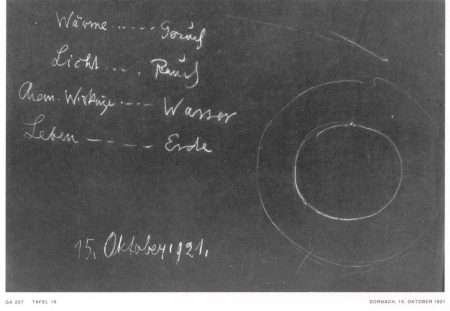 Wärme ..... Geruch
Licht .... Rauch
Chem. Wirkung .... Wasser
Leben ----- Erde
15. Oktober 1921.
GA 207 TAFEL 10
DORNACH, 15. OKTOBER 1921